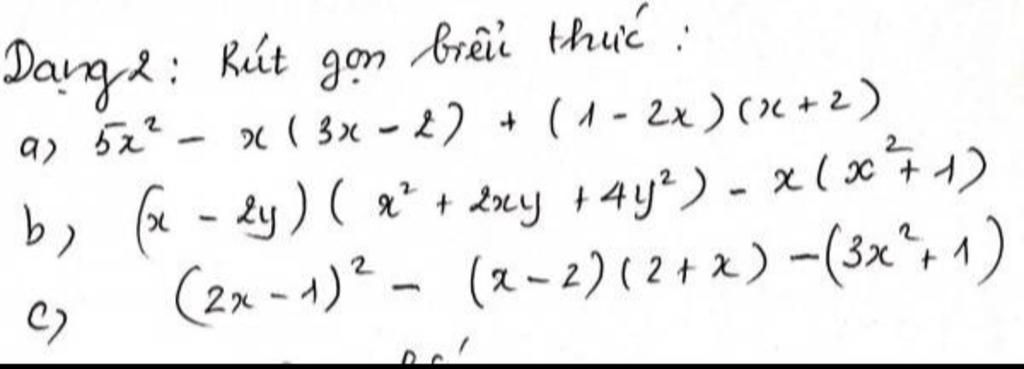 Dạng 2: Rút gọn biểu thức:
a) 5x² - x(3x - 2) + (1 - 2x)(x + 2)
b) (x - 2y)(x² + 2xy + 4y²) - x(x² + 1)
c) (2x - 1)² - (x - 2)(2 + x) - (3x² + 1)